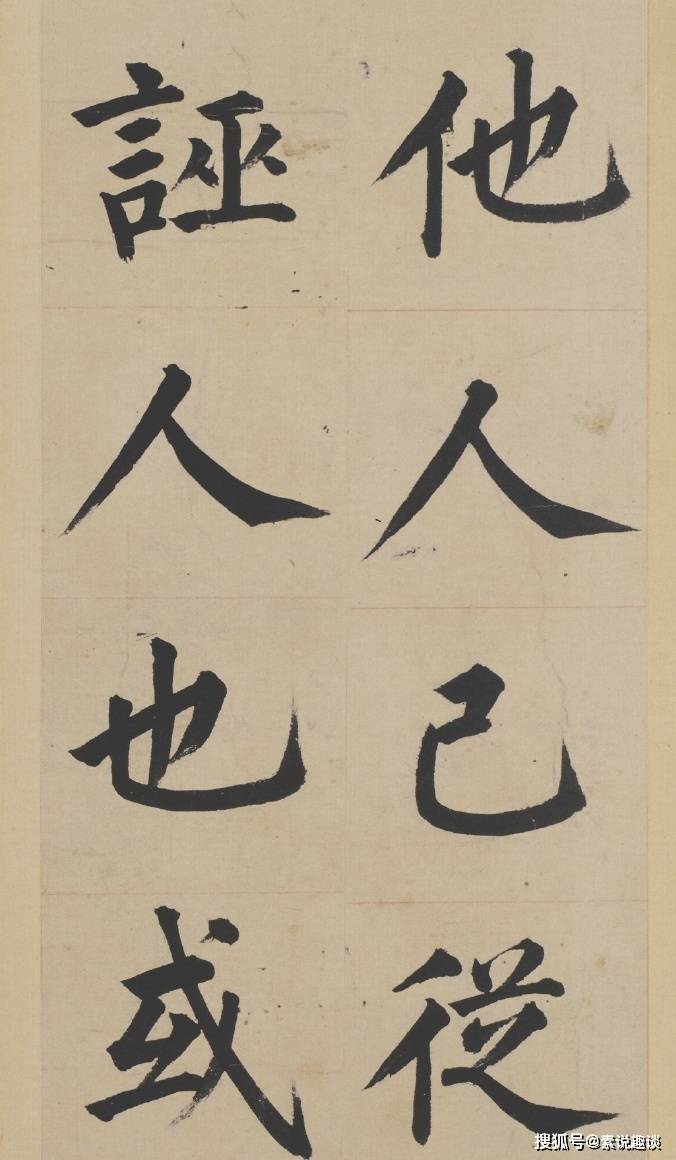 他人已從
誣人也或
搜狐号@素说趣谈